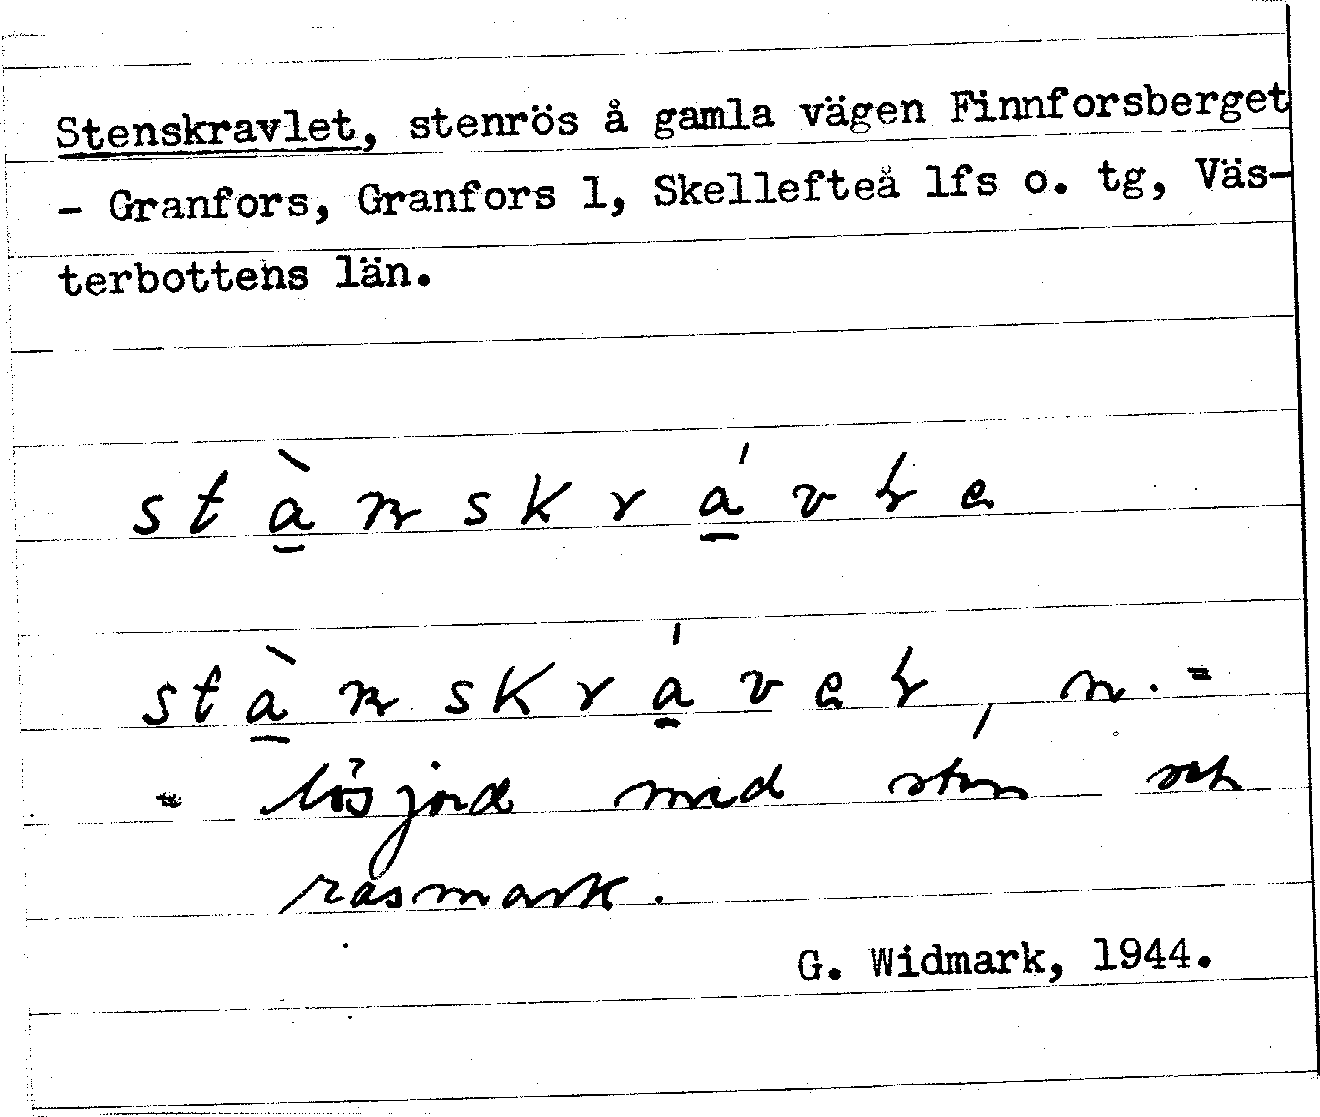 Stenskravlet, stenrös å gamla vägen Finnforsberget
- Granfors, Granfors 1, Skellefteå lfs o. tg, Väs-
terbottens län.
stà̱nskrá̱vɫe
stà̱nskrá̱veɫ, n. =
= lös jord med sten och
rasmark.
G. Widmark, 1944.